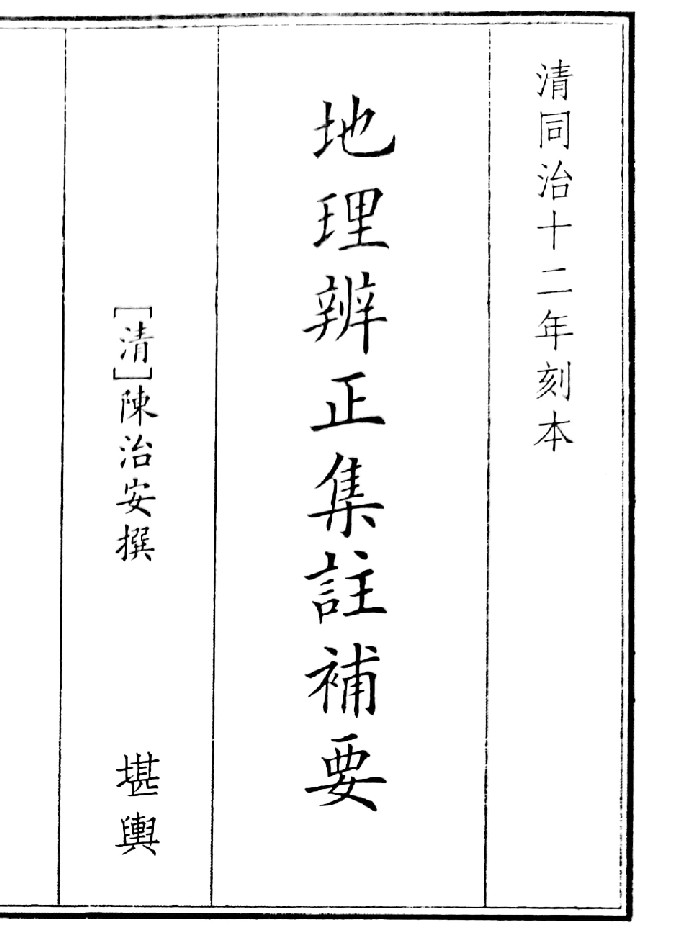 清同治十二年刻本
地理辨正集註補要
[清]陳治安撰
堪輿